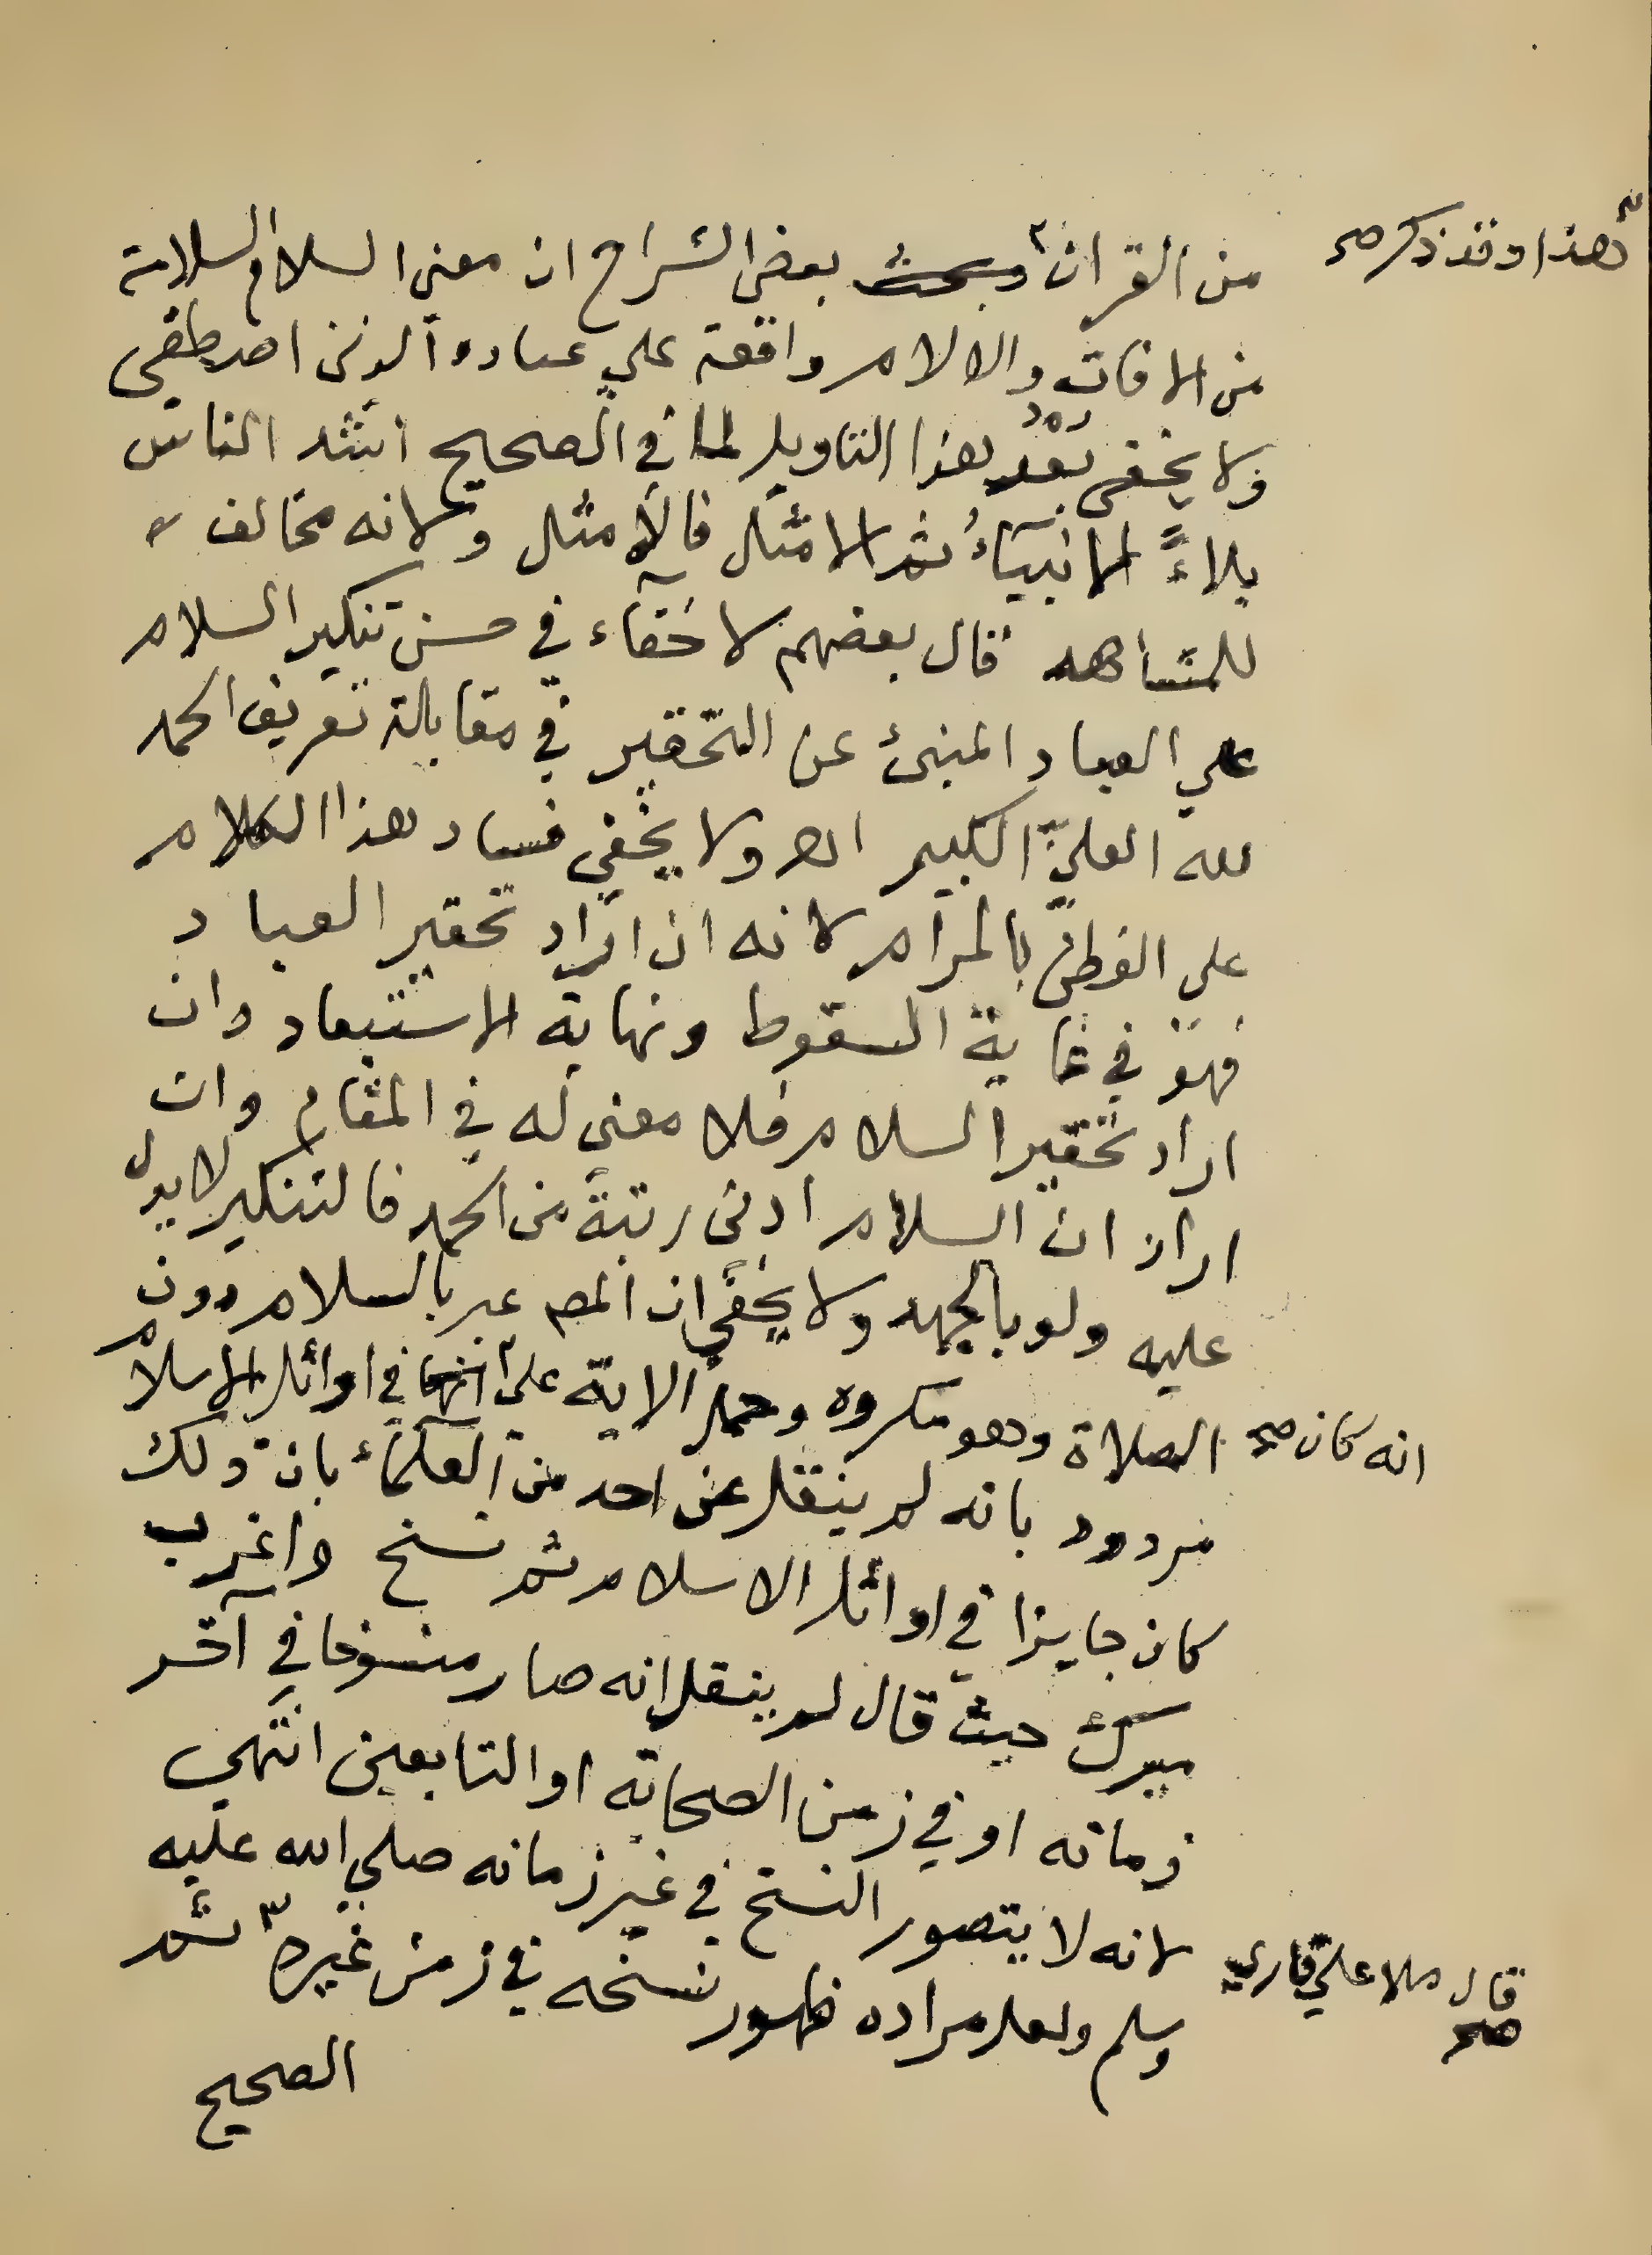 هذا وقد ذكر صح
من القران وبحث بعض الشراح ان معني السلام السلامة
من الافات والالام واقعة علي عباده الذين اصطفى
ولا يخفى بعد هذا التاويل لما في الصحيح اشد الناس
بلاءً الانبياءُ ثم الامثل فالامثل ولانه مخالف
للمشاهد قال بعضهم لا خفاء في حسن تنكير السلام
علي العباد المنبئ عن التحقير في مقابلة تعريف الحمد
لله العليّ الكبير اهـ ولا يخفي فساد هذا الكلام
على الفطن بالمرام لانه ان اراد تحقير العباد
فهو في غاية السقوط ونهاية الاستبعاد وان
اراد تحقير السلام فلا معني له في المقام وان
اراد ان السلام ادنى رتبة من الحمد فالتنكير لا يدل
عليه ولو بالجهد ولا يخفي ان المص عبر بالسلام دون
الصلاة وهو مكروه وحمل الاية على انها في اوائل الاسلام
انه كان صح
مردود بانه لم ينقل عن احد من العلماء بان ذلك
كان جايزا في اوائل الاسلام ثم نسخ واغرب
ميرك حيث قال لم ينقل انه صار منسوخا في آخر
زمانه او في زمن الصحابة او التابعين انتهى
لانه لا يتصور النسخ في غير زمانه صلي الله عليه
وسلم ولعل مراده ظهور نسخه في زمن غيره ثم
قال ملا علي قاري
صح
الصحيح